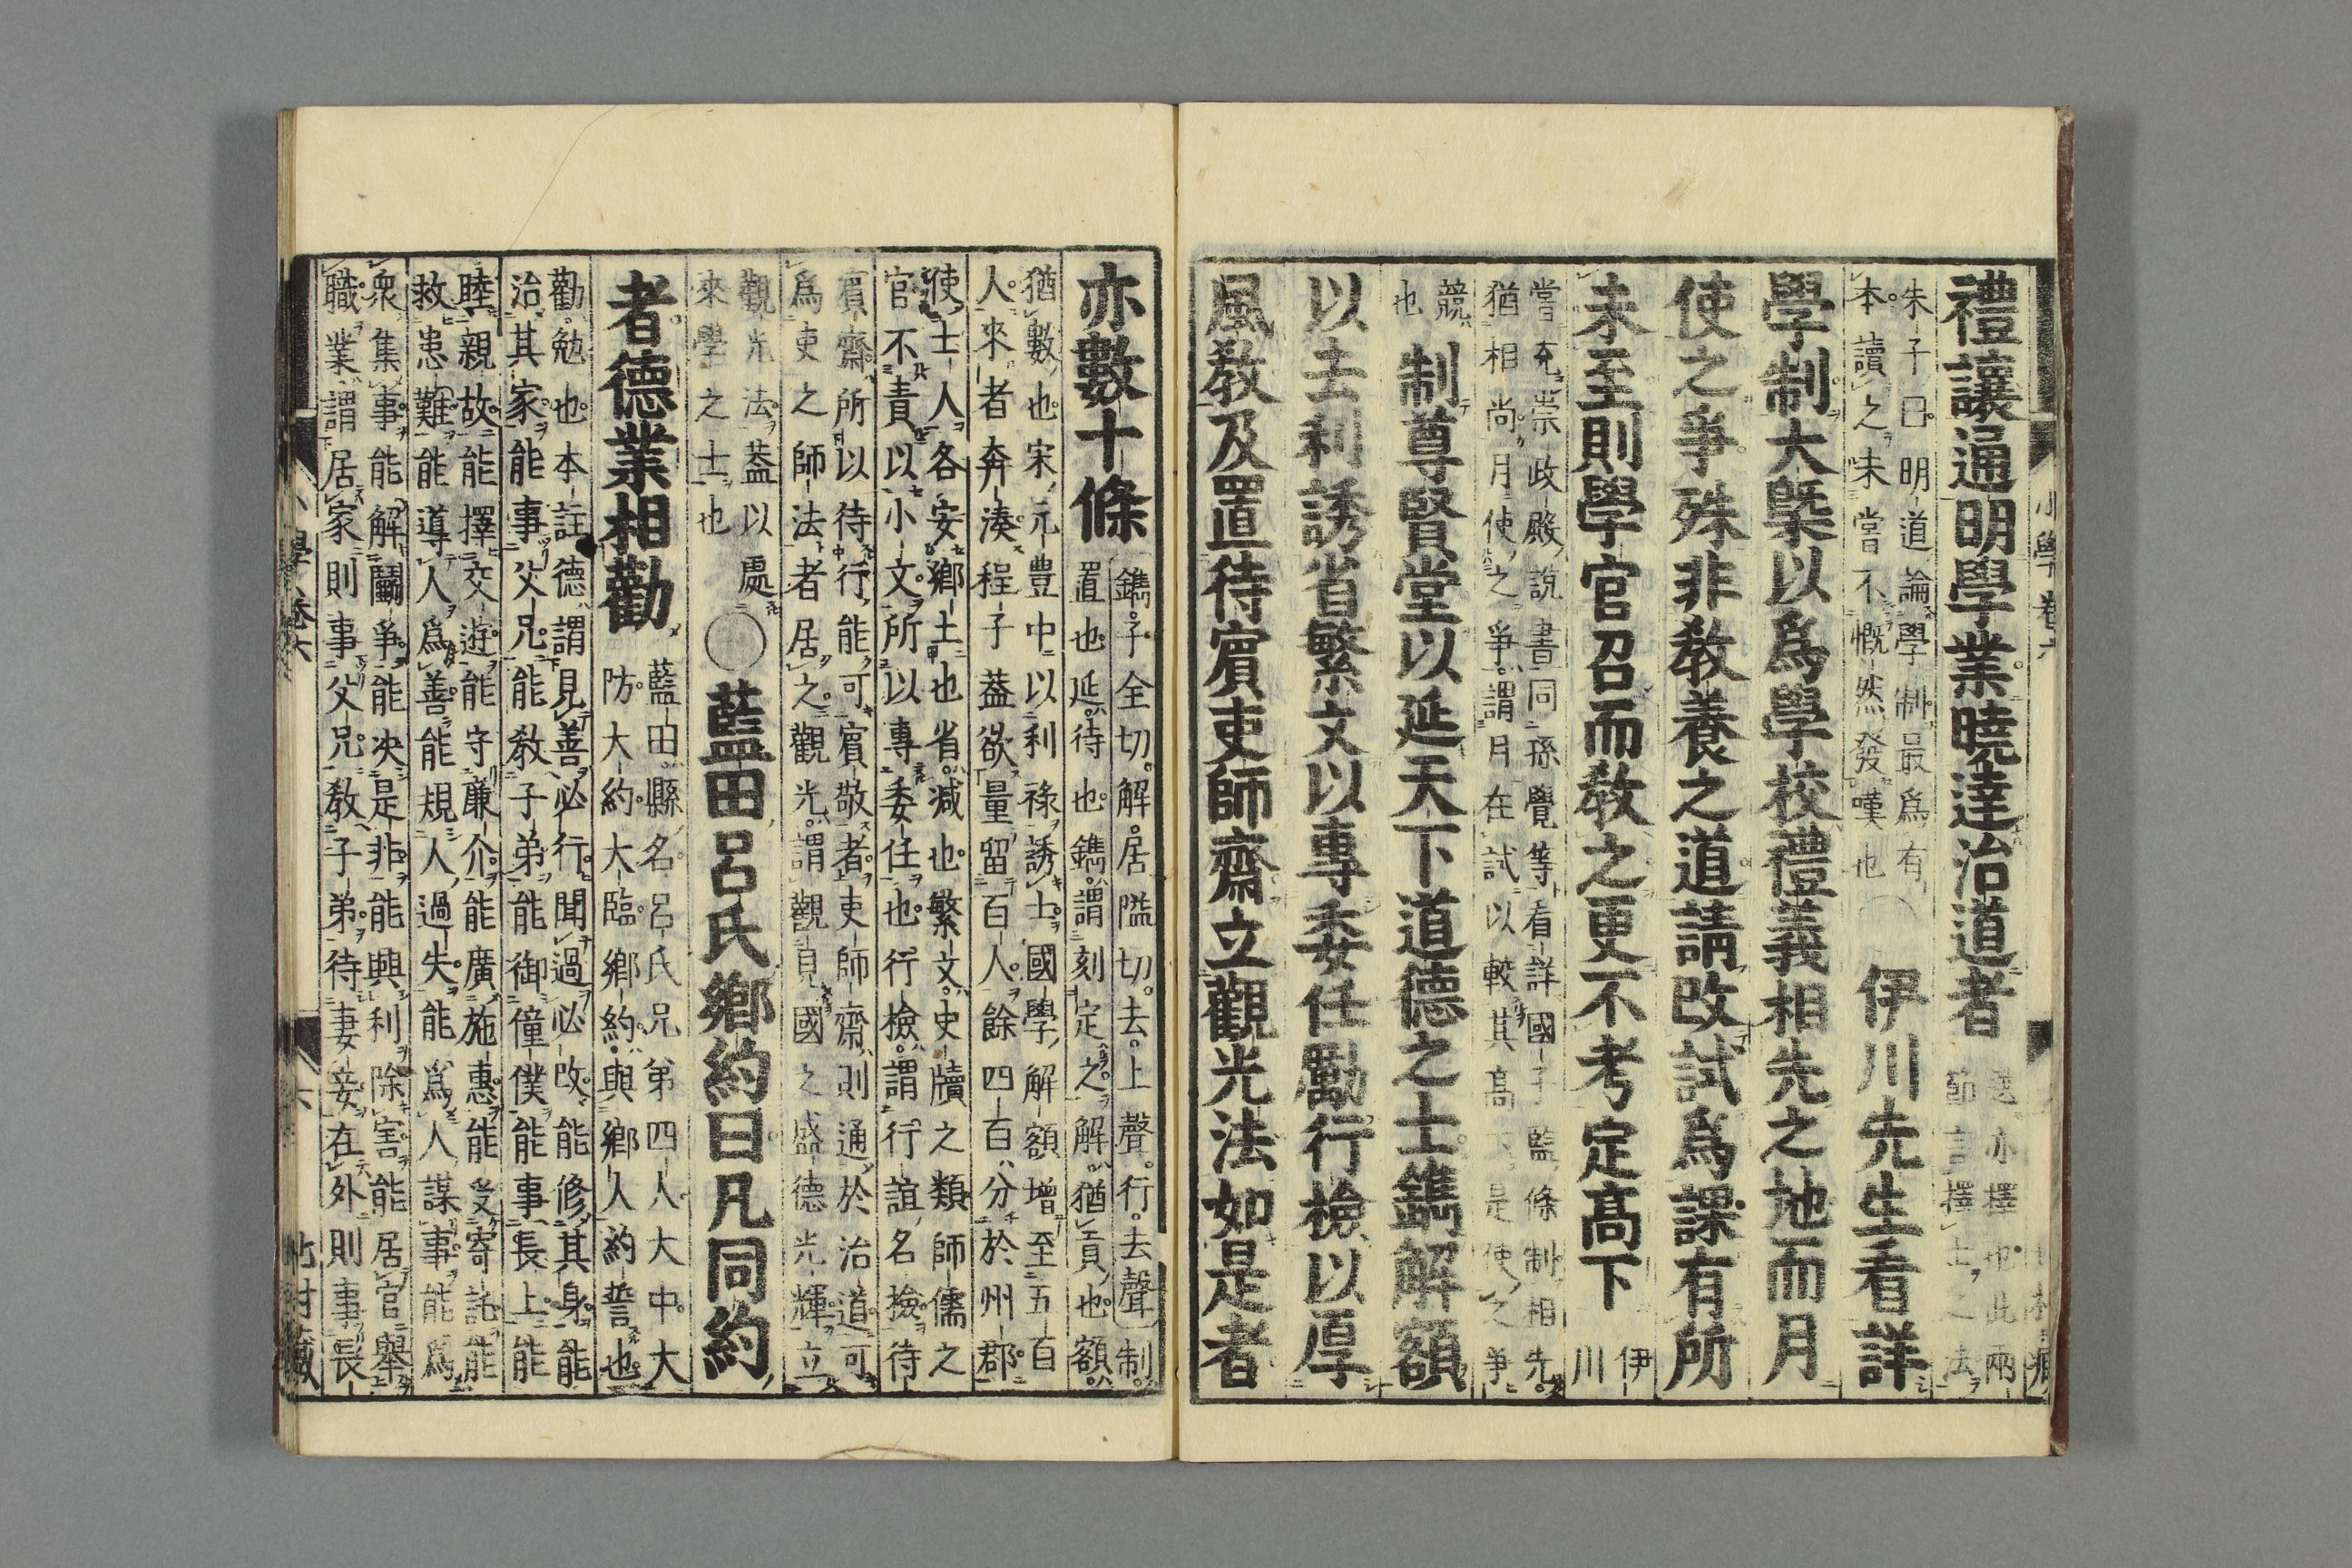 小學卷六
禮讓通明學業曉達治道者
選亦擇也此兩
節言擇士之法
朱子曰明道論學制最爲有
本讀之未嘗不慨然發嘆也
伊川先生看詳
學制大槩以爲學校禮義相先之地而月
使之爭殊非教養之道請改試爲課有所
未至則學官召而教之更不考定高下
伊
川
嘗充崇政殿說書同孫覺等看詳國子監條制相先
猶相尚月使之爭謂月在試以較其高下是使之爭
競
也
制尊賢堂以延天下道德之士鐫解額
以去利誘省繁文以專委任勵行檢以厚
風教及置待賓吏師齋立觀光法如是者
亦數十條
鐫子全切解居隘切去上聲行去聲制
置也延待也鐫謂刻定之解猶貢也額
猶數也宋元豊中以利祿誘士國學解額增至五百
人來者奔湊程子葢欲量留百人餘四百分於州郡
使士人各安鄉土也省减也繁文史牘之類師儒之
官不責以小文所以專委任也行檢謂行誼名撿待
賓齋所以待行能可賓敬者吏師齋則通於治道可
爲吏之師法者居之觀光謂觀見國之盛德光輝立
觀光法葢以處
來學之士也
○藍田呂氏鄉約曰凡同約
者德業相勸
藍田縣名呂氏兄弟四人大中大
防大約大臨鄉約與鄉人約誓也
勸勉也本註德謂見善必行聞過必改能修其身能
治其家能事父兄能教子弟能御僮僕能事長上能
睦親故能擇交遊能守廉介能廣施惠能受寄託能
救患難能導人爲善能規人過失能爲人謀事能爲
衆集事能解鬭爭能决是非能興利除害能居官舉
職業謂居家則事父兄教子弟待妻妾在外則事長
小學卷六
六